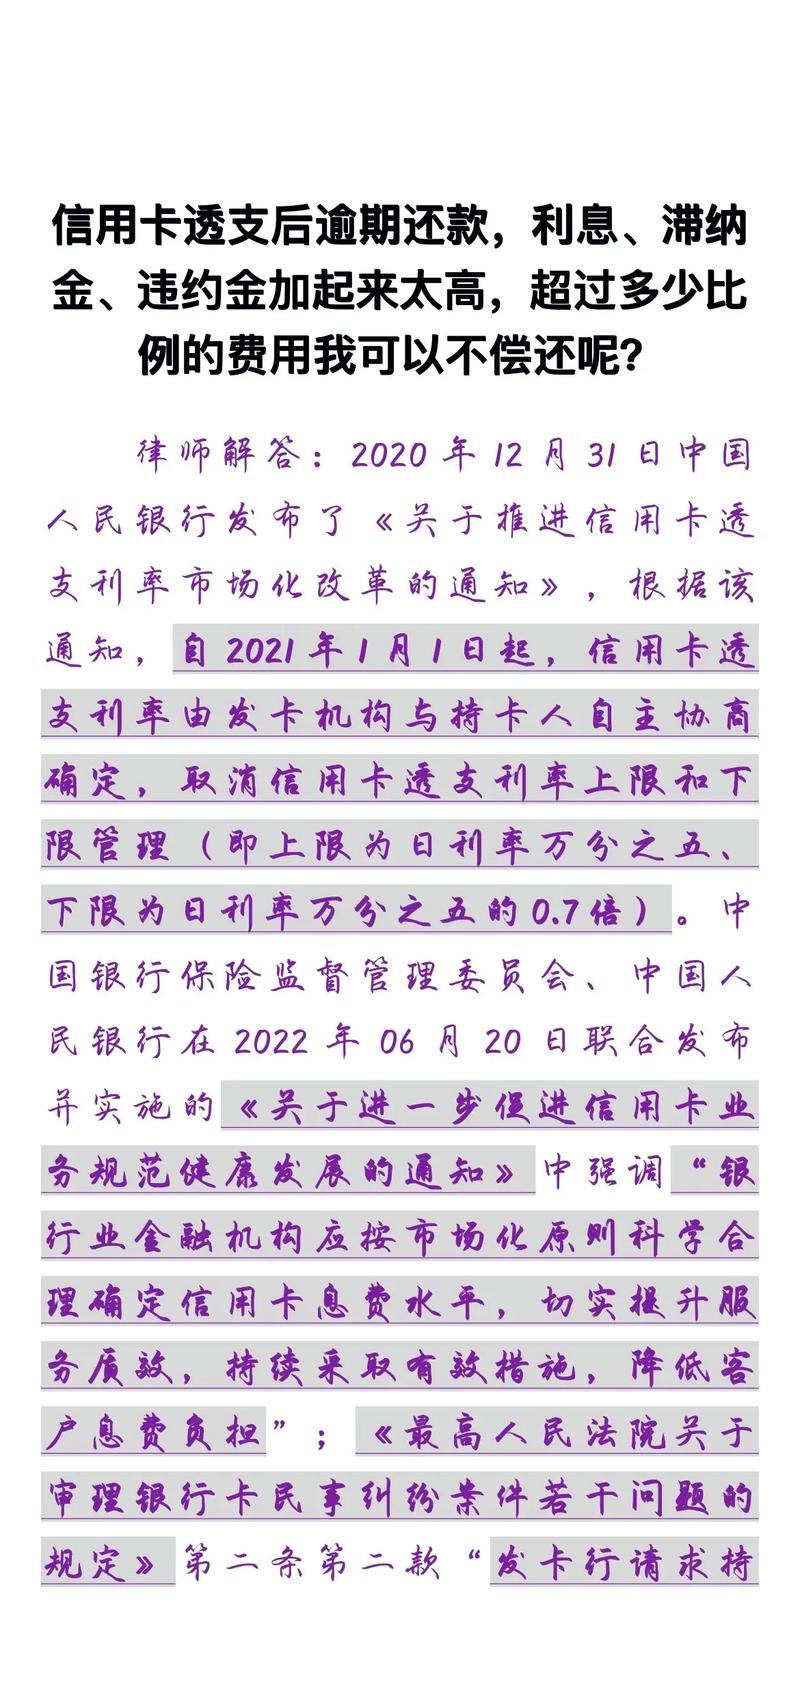 信用卡透支后逾期还款，利息、滞纳
金、违约金加起来太高，超过多少比
例的费用我可以不偿还呢？
律师解答：2020年12月31日中国
人民银行发布了《关于推进信用卡透
支利率市场化改革的通知》，根据该
通知，自2021年1月1日起，信用卡透
支利率由发卡机构与持卡人自主协商
确定，取消信用卡透支利率上限和下
限管理（即上限为日利率万分之五、
下限为日利率万分之五的0.7倍）。中
国银行保险监督管理委员会、中国人
民银行在2022年06月20日联合发布
并实施的《关于进一步促进信用卡业
务规范健康发展的通知》中强调“银
行业金融机构应按市场化原则科学合
理确定信用卡息费水平，切实提升服
务质效，持续采取有效措施，降低客
户息费负担”；《最高人民法院关于
审理银行卡民事纠纷案件若干问题的
规定》第二条第二款“发卡行请求持